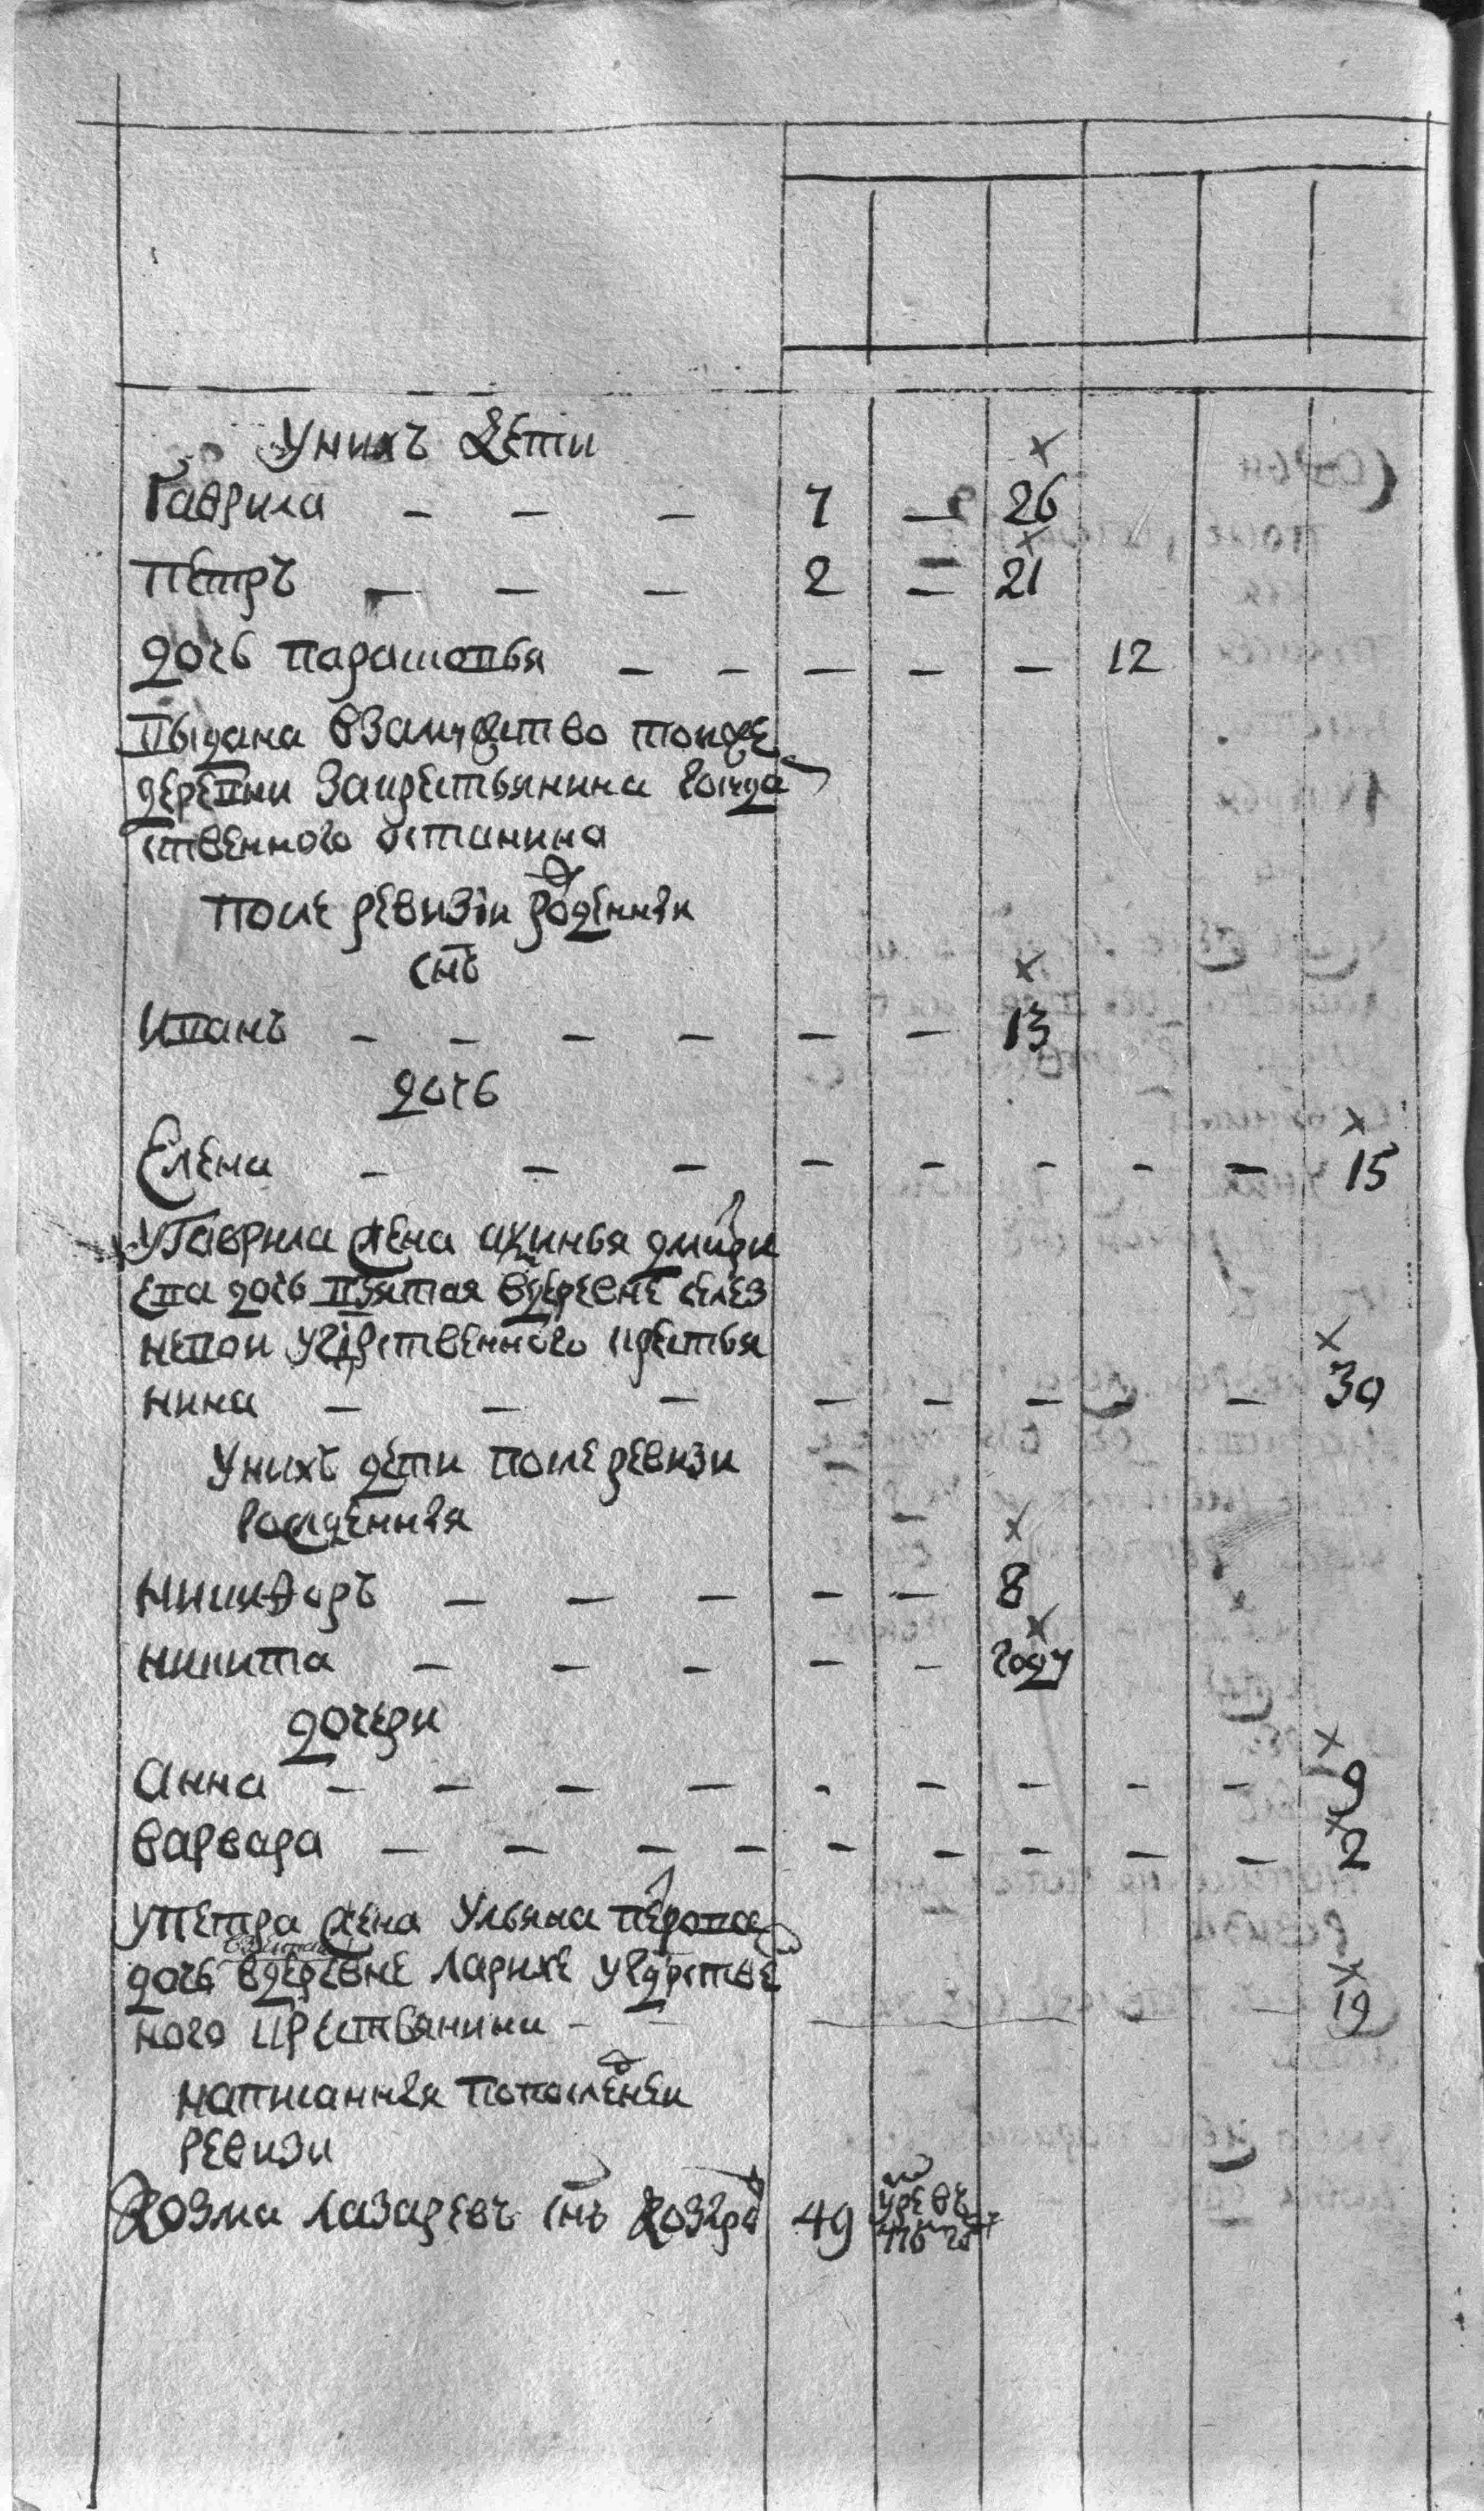 Унихъ дети
Гаврила — — — 7 — 26
Петръ — — — 2 — 21
дочь парасковья — — — — — 12
выдана взамужство тоиже
деревни закрестьянина госуда
рственного останина
после ревизiи рожденныи
снъ
Иванъ — — — — — — 13
дочь
Елена — — — — — — — — 15
Угаврила жена аксинья дмитри
ева дочь взятая вдеревне селез
невои угдрственного крестья
нина — — — — — — — 30
Унихъ дети после ревизи
рожденныя
Никифоръ — — — — — 8
никита — — — — — году
дочери
Анна — — — — — — — — — 9
варвара — — — — — — — — — 2
Упетра жена Ульяна петрова
взятая
дочь вдеревне Ларихе угдрстве
ного крестьянина — — 19
написанныя попоследнеи
ревизи
Козма Лазаревъ снъ 49